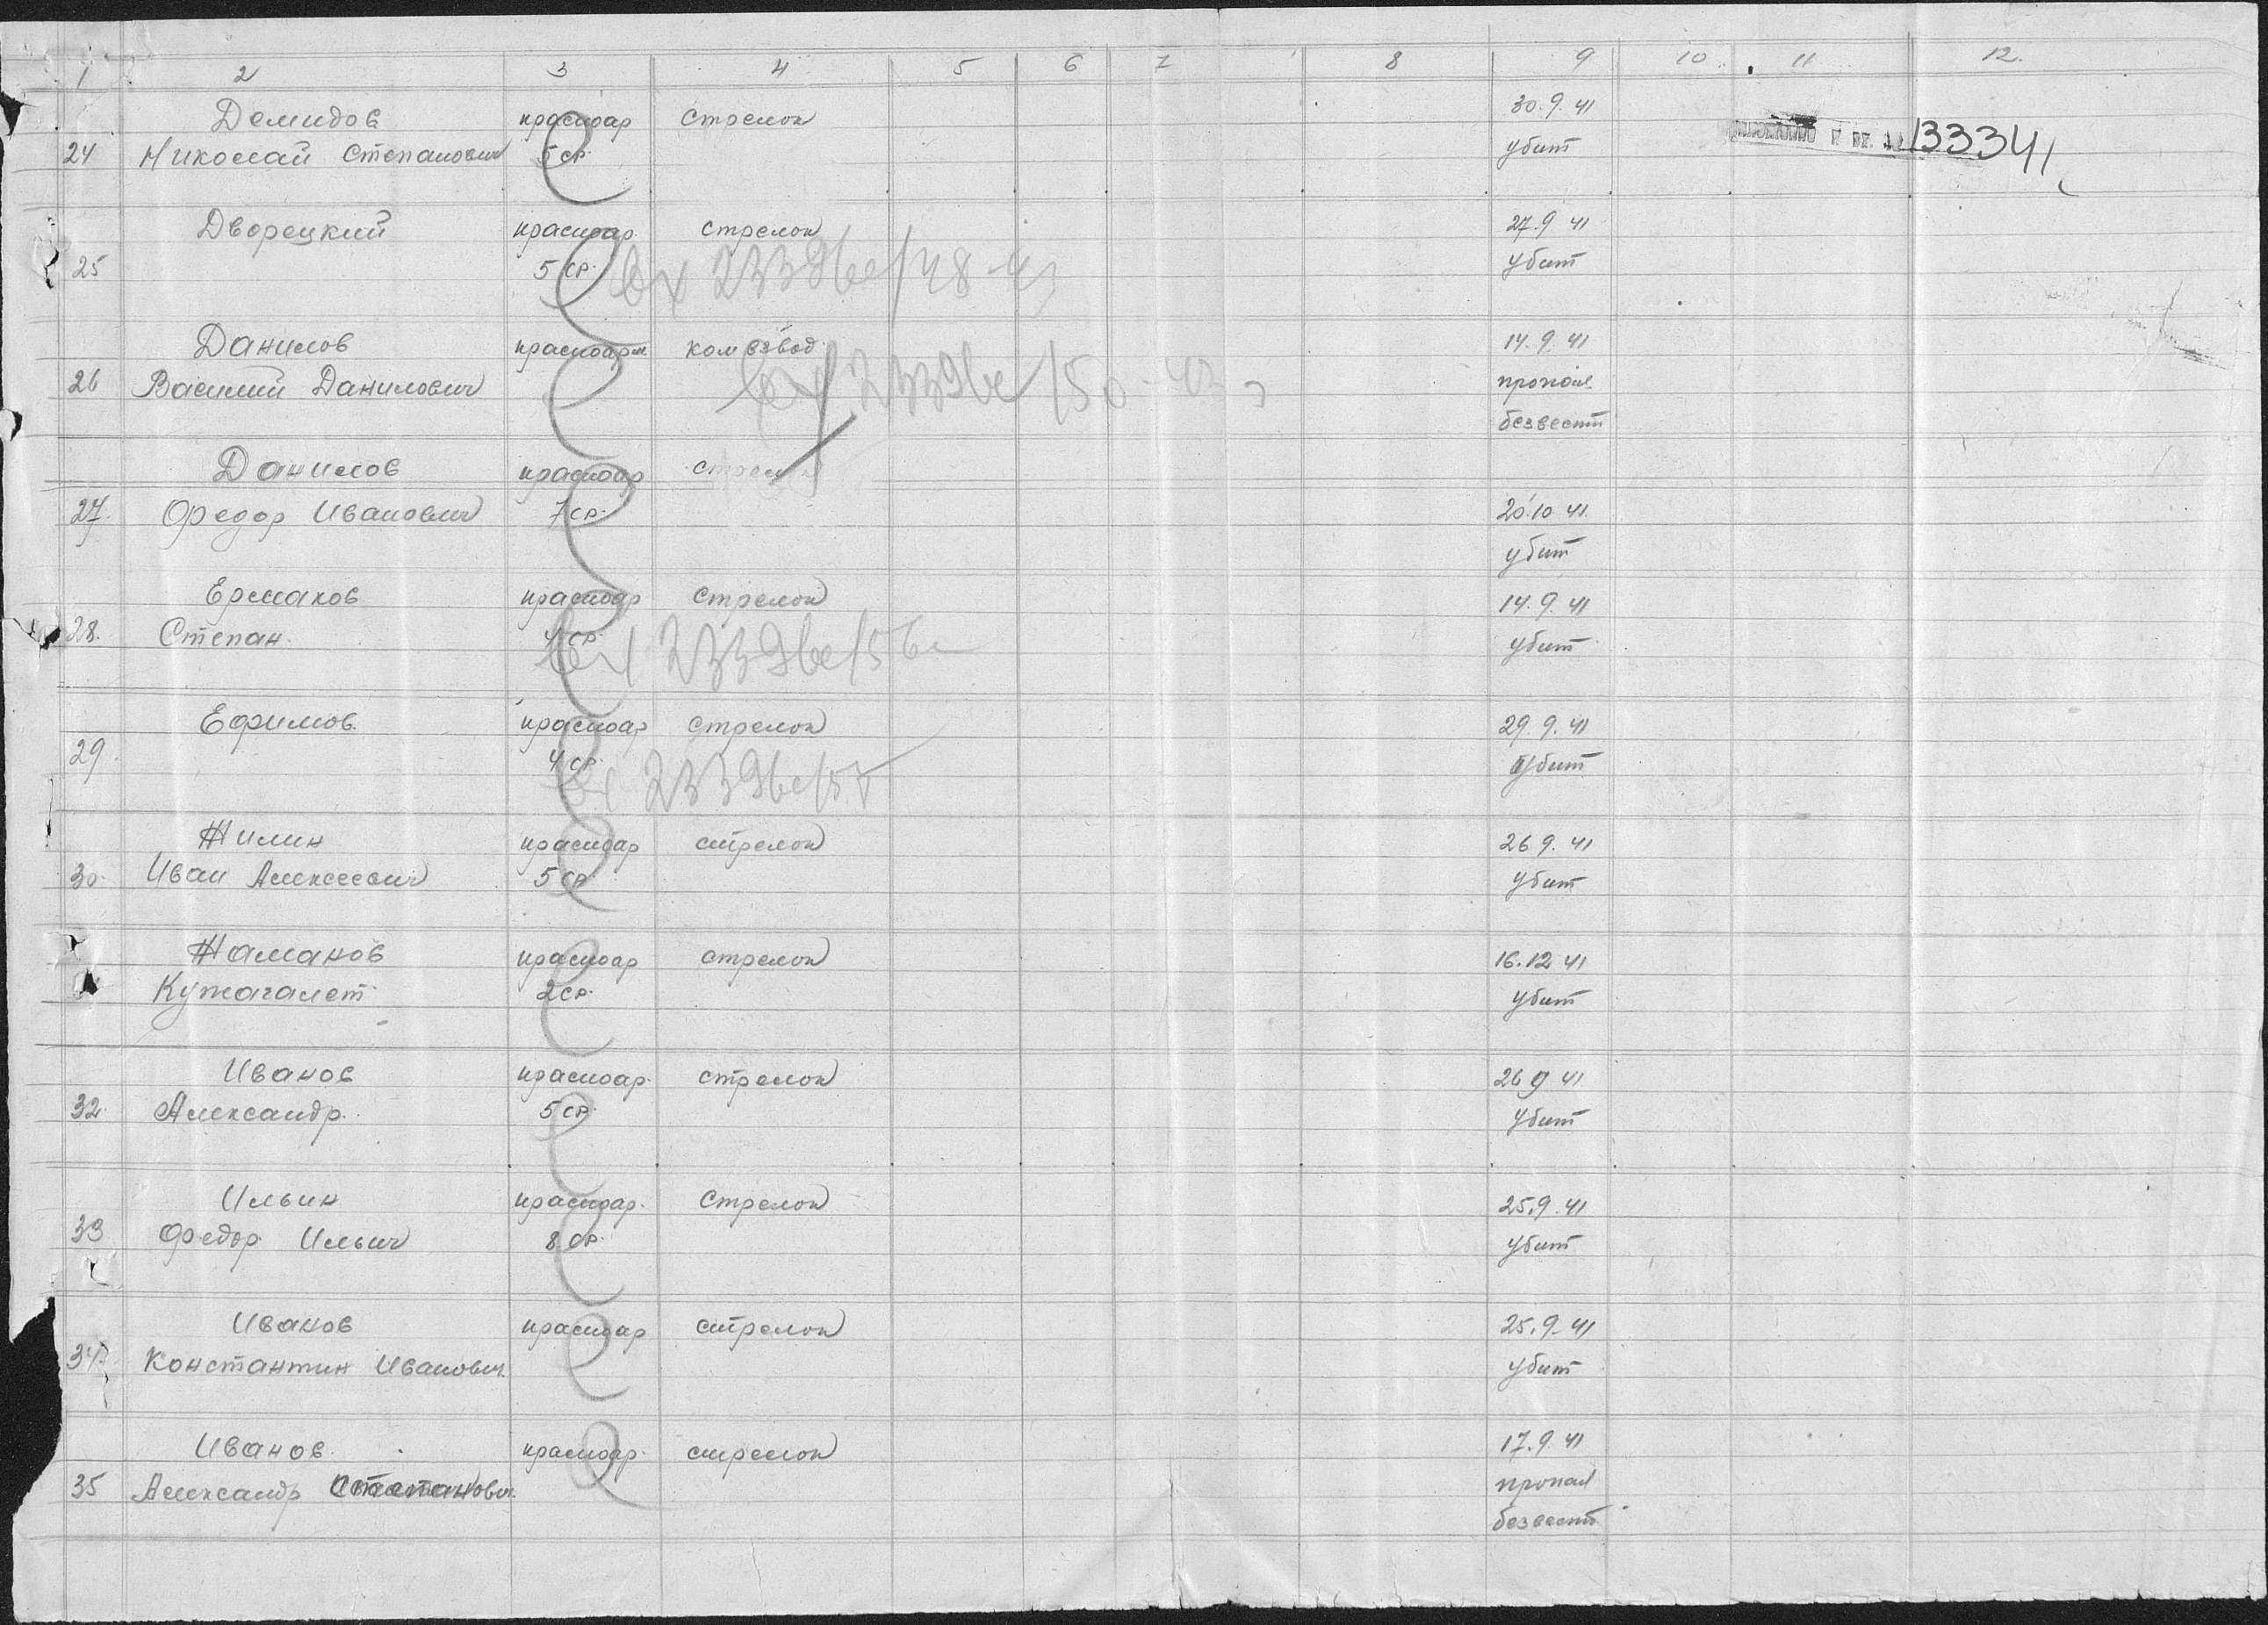 1 2 3 4 5 6 7 8 9 10 11 12.
Демидов красноар стрелок 30.9.41
24 Николай Степанович 5 ср. убит
13334
Дворецкий красноар. стрелок 27.9 41
25 5 ср. убит
вх 23396с/48-43
Данилов красноарм комвзвод 14.9.41
26 Василий Данилович пропал
вх 23396с/50-43
безвест
Данилов красноар стрелок
27. Федор Иванович 7 ср. 20.10 41.
убит
Ермаков красноар стрелок 14.9.41
28. Степан. 4 ср. убит
вх 23396с/56
Ефимов. красноар стрелок 29.9.41
29. 4 ср. убит
вх 23396с/55
Жилин красноар стрелок 26 9.41
30. Иван Алексеевич 5 ср убит
Жаманов красноар стрелок 16.12 41
Кужагалет 2 ср. убит
Иванов красноар. стрелок 26 9 41
32. Александр. 5 ср. убит
Ильин красноар. стрелок 25.9.41
33 Федор Ильич 8 ср. убит
Иванов красноар стрелок 25.9.41
34. Константин Иванович. убит
Иванов. красноар. стрелок 17.9.41
35 Александр Степанович. пропал
безвест.